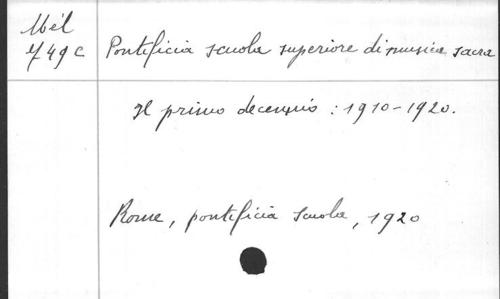 Mél
749 c
Pontificia scuola superiore di musica sacra
Il primo decennio : 1910-1920.
Rome, pontificia scuola, 1920